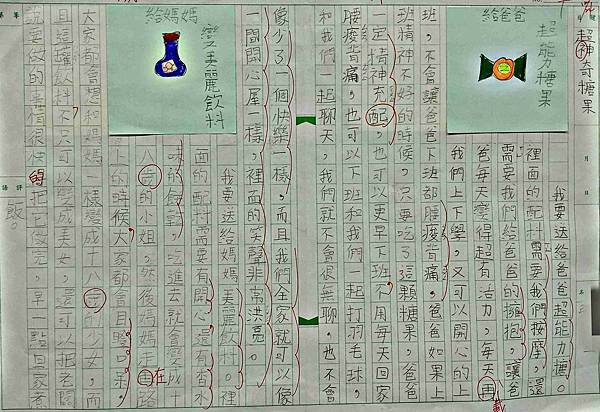 超神奇糖果
給爸爸
超能力糖果
我要送給爸爸超能力糖。
裡面的配材需要我們按摩，還
需要我們給爸爸的擁抱，讓爸
爸每天變得超有活力，每天再
我們上下學，又可以開心的上
班，不會讓爸爸下班都腰痠背痛。爸爸如果上
班精神不好的時候，只要吃了這顆糖果，爸爸
一定精神充配，也可以更早下班，不用每天回家
腰痠背痛，也可以下班和我們一起打羽毛球，
和我們一起聊天，我們就不會很無聊，也不會
像少了一個快樂一樣，而且我們全家就可以像
一間開心屋一樣，裡面的笑聲非常洪亮。
給媽媽
變美麗飲料
我要送給媽媽美麗飲料。裡
面的配材需要有開心，還有香水
味的餅乾，吃進去就會變成十
八歲的小姐，然後媽媽走在路
上的時候大家都會目瞪口呆，
大家都會想和媽媽一樣變成十八歲的少女，而
且這罐飲料不只可以變成美女，還可以把老闆
說要做的事情很快的把它做完，早一點回家煮
飯。